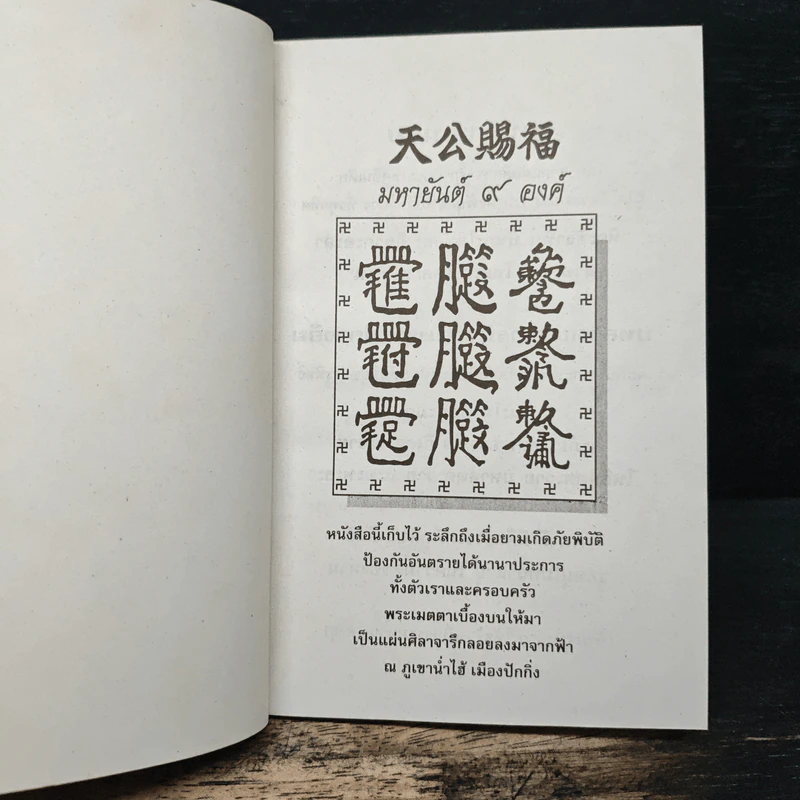 天公賜福
มหายันต์ ๙ องค์
หนังสือนี้เก็บไว้ ระลึกถึงเมื่อยามเกิดภัยพิบัติ
ป้องกันอันตรายได้นานาประการ
ทั้งตัวเราและครอบครัว
พระเมตตาเบื้องบนให้มา
เป็นแผ่นศิลาจารึกลอยลงมาจากฟ้า
ณ ภูเขาน่ำไฮ้ เมืองปักกิ่ง